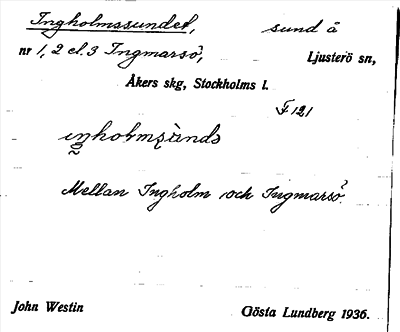 Ingholmssundet, sund å
nr 1, 2 el. 3 Ingmarsö, Ljusterö sn,
Åkers skg, Stockholms l.
F 121
Mellan Ingholm och Ingmarsö.
John Westin Gösta Lundberg 1936.